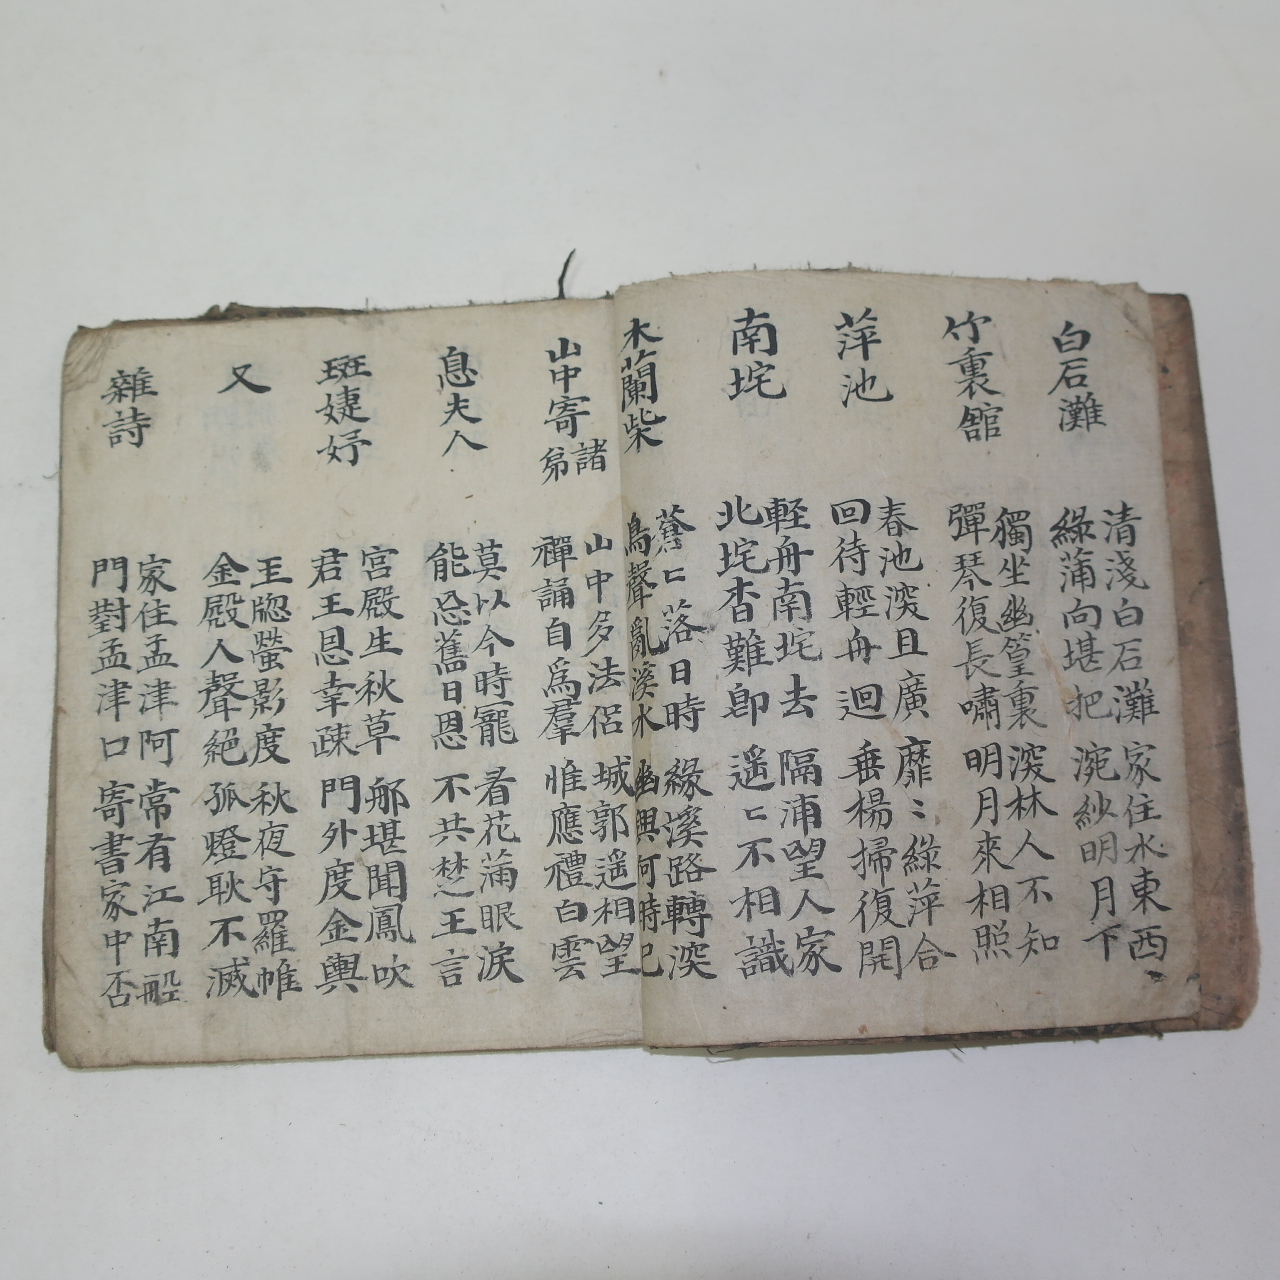 白石灘
清淺白石灘 家住水東西
綠蒲向堪把 涴紗明月下
竹裏舘
獨坐幽篁裏 深林人不知
彈琴復長嘯 明月來相照
萍池
春池深且廣 靡〻綠萍合
回待輕舟迴 垂楊掃復開
南垞
輕舟南垞去 隔浦望人家
北垞杳難卽 遥〻不相識
木蘭柴
蒼〻落日時 緣溪路轉深
鳥聲亂溪水 幽興何時已
山中寄諸弟
山中多法侶 城郭遥相望
禪誦自爲羣 惟應禮白雲
息夫人
莫以今時寵 看花滿眼淚
能忘舊日恩 不共楚王言
班婕妤
宮殿生秋草 那堪聞鳳吹
君王恩幸疎 門外度金輿
又
玉牕螢影度 秋夜守羅帷
金殿人聲絕 孤燈耿不滅
雜詩
家住孟津阿 常有江南船
門對孟津口 寄書家中否